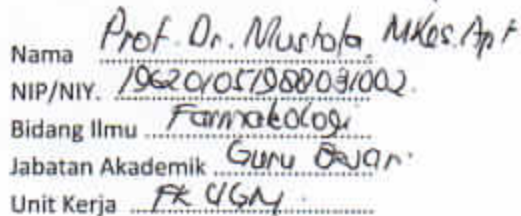 Nama Prof. Dr. Mustofa, MKes. Apt
NIP/NIY. 196201051988031002
Bidang Ilmu Farmakologi
Jabatan Akademik Guru Besar
Unit Kerja FK UGM